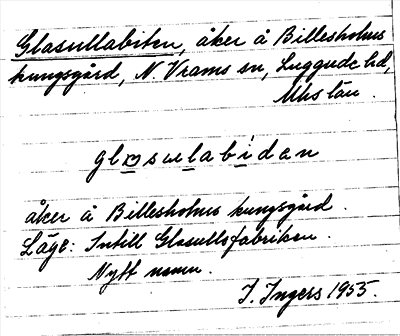 Glasullabiten, åker å Billesholms
kungsgård, N. Vrams sn, Luggude hd,
Mhs län.
glɒsulabidan
åker å Billesholms kungsgård.
Läge: Intill Glasullsfabriken.
Nytt namn.
I. Ingers 1955.